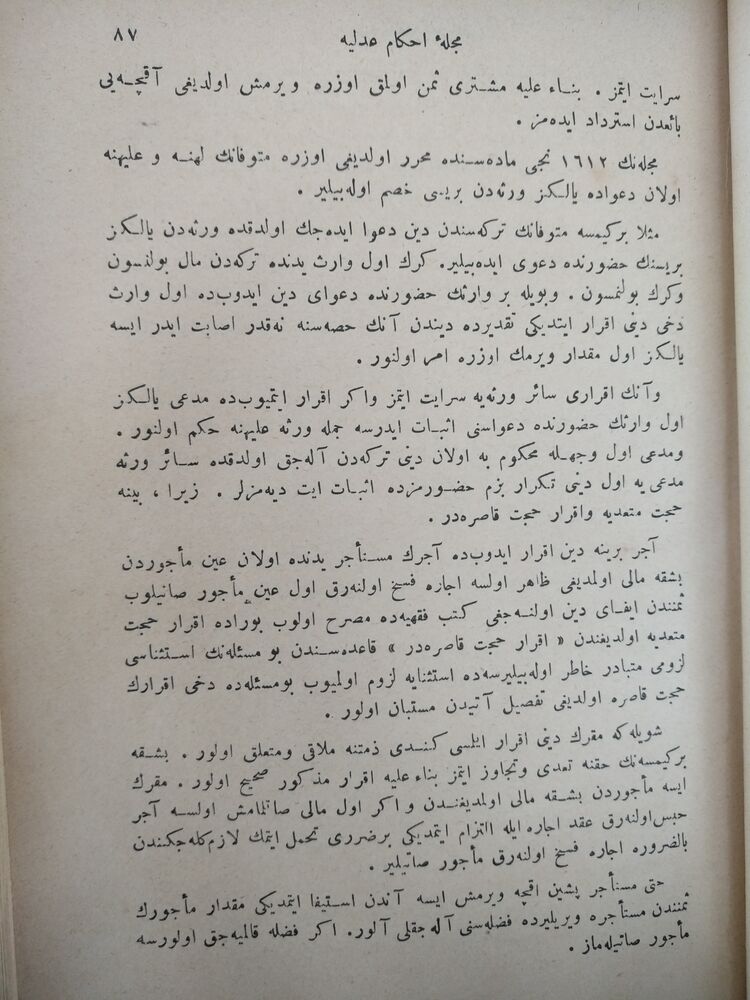 مجلهٔ احکام عدلیه
٨٧
سرایت ایتمز . بنـاء علیه مشـتری ثمن اولمق اوزره ویرمش اولدیغی آقچـه‌یی
بائعدن استرداد ایده‌مز .
مجله‌نك ١٦١٢ نجی ماده‌سـنده محرر اولدیغی اوزره متوفانك لهنـه و علیهنه
اولان دعواده یالـکز ورثه‌دن بریـی خصم اوله‌بیلیر .
مثلا برکیمسه متوفانك ترکه‌سندن دین دعوا ایده‌جك اولدقده ورثه‌دن یالـکز
بریسنك حضورنده دعوی ایده‌بیلیر. کرك اول وارث یدنده ترکه‌دن مال بولنسون
وکرك بولنمسون . وبویله بر وارثك حضورنده دعوای دین ایدوب‌ده اول وارث
دخی دینی اقرار ایتدیکی تقدیرده دیندن آنك حصه‌سنه نه‌قدر اصابت ایدر ایسه
یالـکز اول مقدار ویرمك اوزره امر اولنور .
وآنك اقراری سائر ورثه‌یه سرایت ایتمز واکر اقرار ایتمیوب‌ده مدعی یالـکز
اول وارثك حضورنده دعواسنی اثبـات ایدرسه جمله ورثه علیهنه حکم اولنور .
ومدعی اول وجهـله محکوم به اولان دینی ترکه‌دن آله‌جق اولدقده سـائر ورثه
مدعی‌یه اول دینی تکرار بزم حضـورمزده اثبـات ایت دیه‌مزلر . زیرا ، بینه
حجت متعدیه واقرار حجت قاصره‌در .
آجر برینه دین اقرار ایدوب‌ده آجرك مسـتأجر یدنده اولان عین مأجوردن
بشقه مالی اولمدیغی ظاهر اولسه اجاره فسخ اولنه‌رق اول عین مأجور صاتیلوب
ثمنندن ایفای دین اولنـه‌جغی کتب فقهیه‌ده مصرح اولوب بوراده اقرار حجت
متعدیه اولدیغندن « اقرار حجت قاصره‌در » قاعده‌سـندن بو مسئله‌نك اسـتثناسی
لزومی متبادر خاطر اوله‌بیلیرسه‌ده استثنایه لزوم اولمیوب بومسئله‌ده دخی اقرارك
حجت قاصره اولدیغی تفصیل آتیدن مستبان اولور .
شویله‌که مقرك دینی اقرار ایلسی کـنـدی ذمتنه ملاقی ومتعلق اولور . بشـقه
برکیمسه‌نك حقنه تعدی وتجاوز ایتمز بناء علیه اقرار مذکور صحیح اولور . مقرك
ایسه مأجوردن بشـقه مالی اولمدیغنـدن و اکر اول مالی صاتمامش اولسـه آجر
حبس اولنه‌رق عقد اجاره ایله التزام ایتمدیکی برضرری تحمل ایتمك لازم‌کله‌جکندن
بالضروره اجاره فسخ اولنه‌رق مأجور صاتیلیر .
حتی مستأجر پشین اقچه ویرمش ایسه آندن اسـتیفا ایتمدیکی مقدار مأجورك
ثمنندن مستأجره ویریلیرده فضله‌سنی آله‌جقلی آلور. اکر فضله قالمیه‌جق اولورسه
مأجور صاتیله‌ماز .